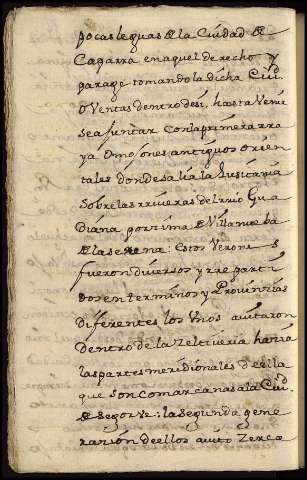 pocas leguas de la Ciudad de
Caparra en aquel derecho y
parage tomando la dicha Ciud.
O Ventas dentro de si, hasta Venir
se a juntar con la primera rra
ya O mojones antiguos orien
tales donde salia la lusitania
sobre las rriveras del rrio Gua
diana por sima de Villanueba
de la serena: Estos Verones
fueron diversos y rrepartj
dos en terminos y Provinzias
diferentes los Vnos avitaron
dentro de la Zeltiveria hazia
las partes meridionales de ella
que son comarcanas a la Ciud.
de segorve: la segunda gene
razion de ellos avito Zerca